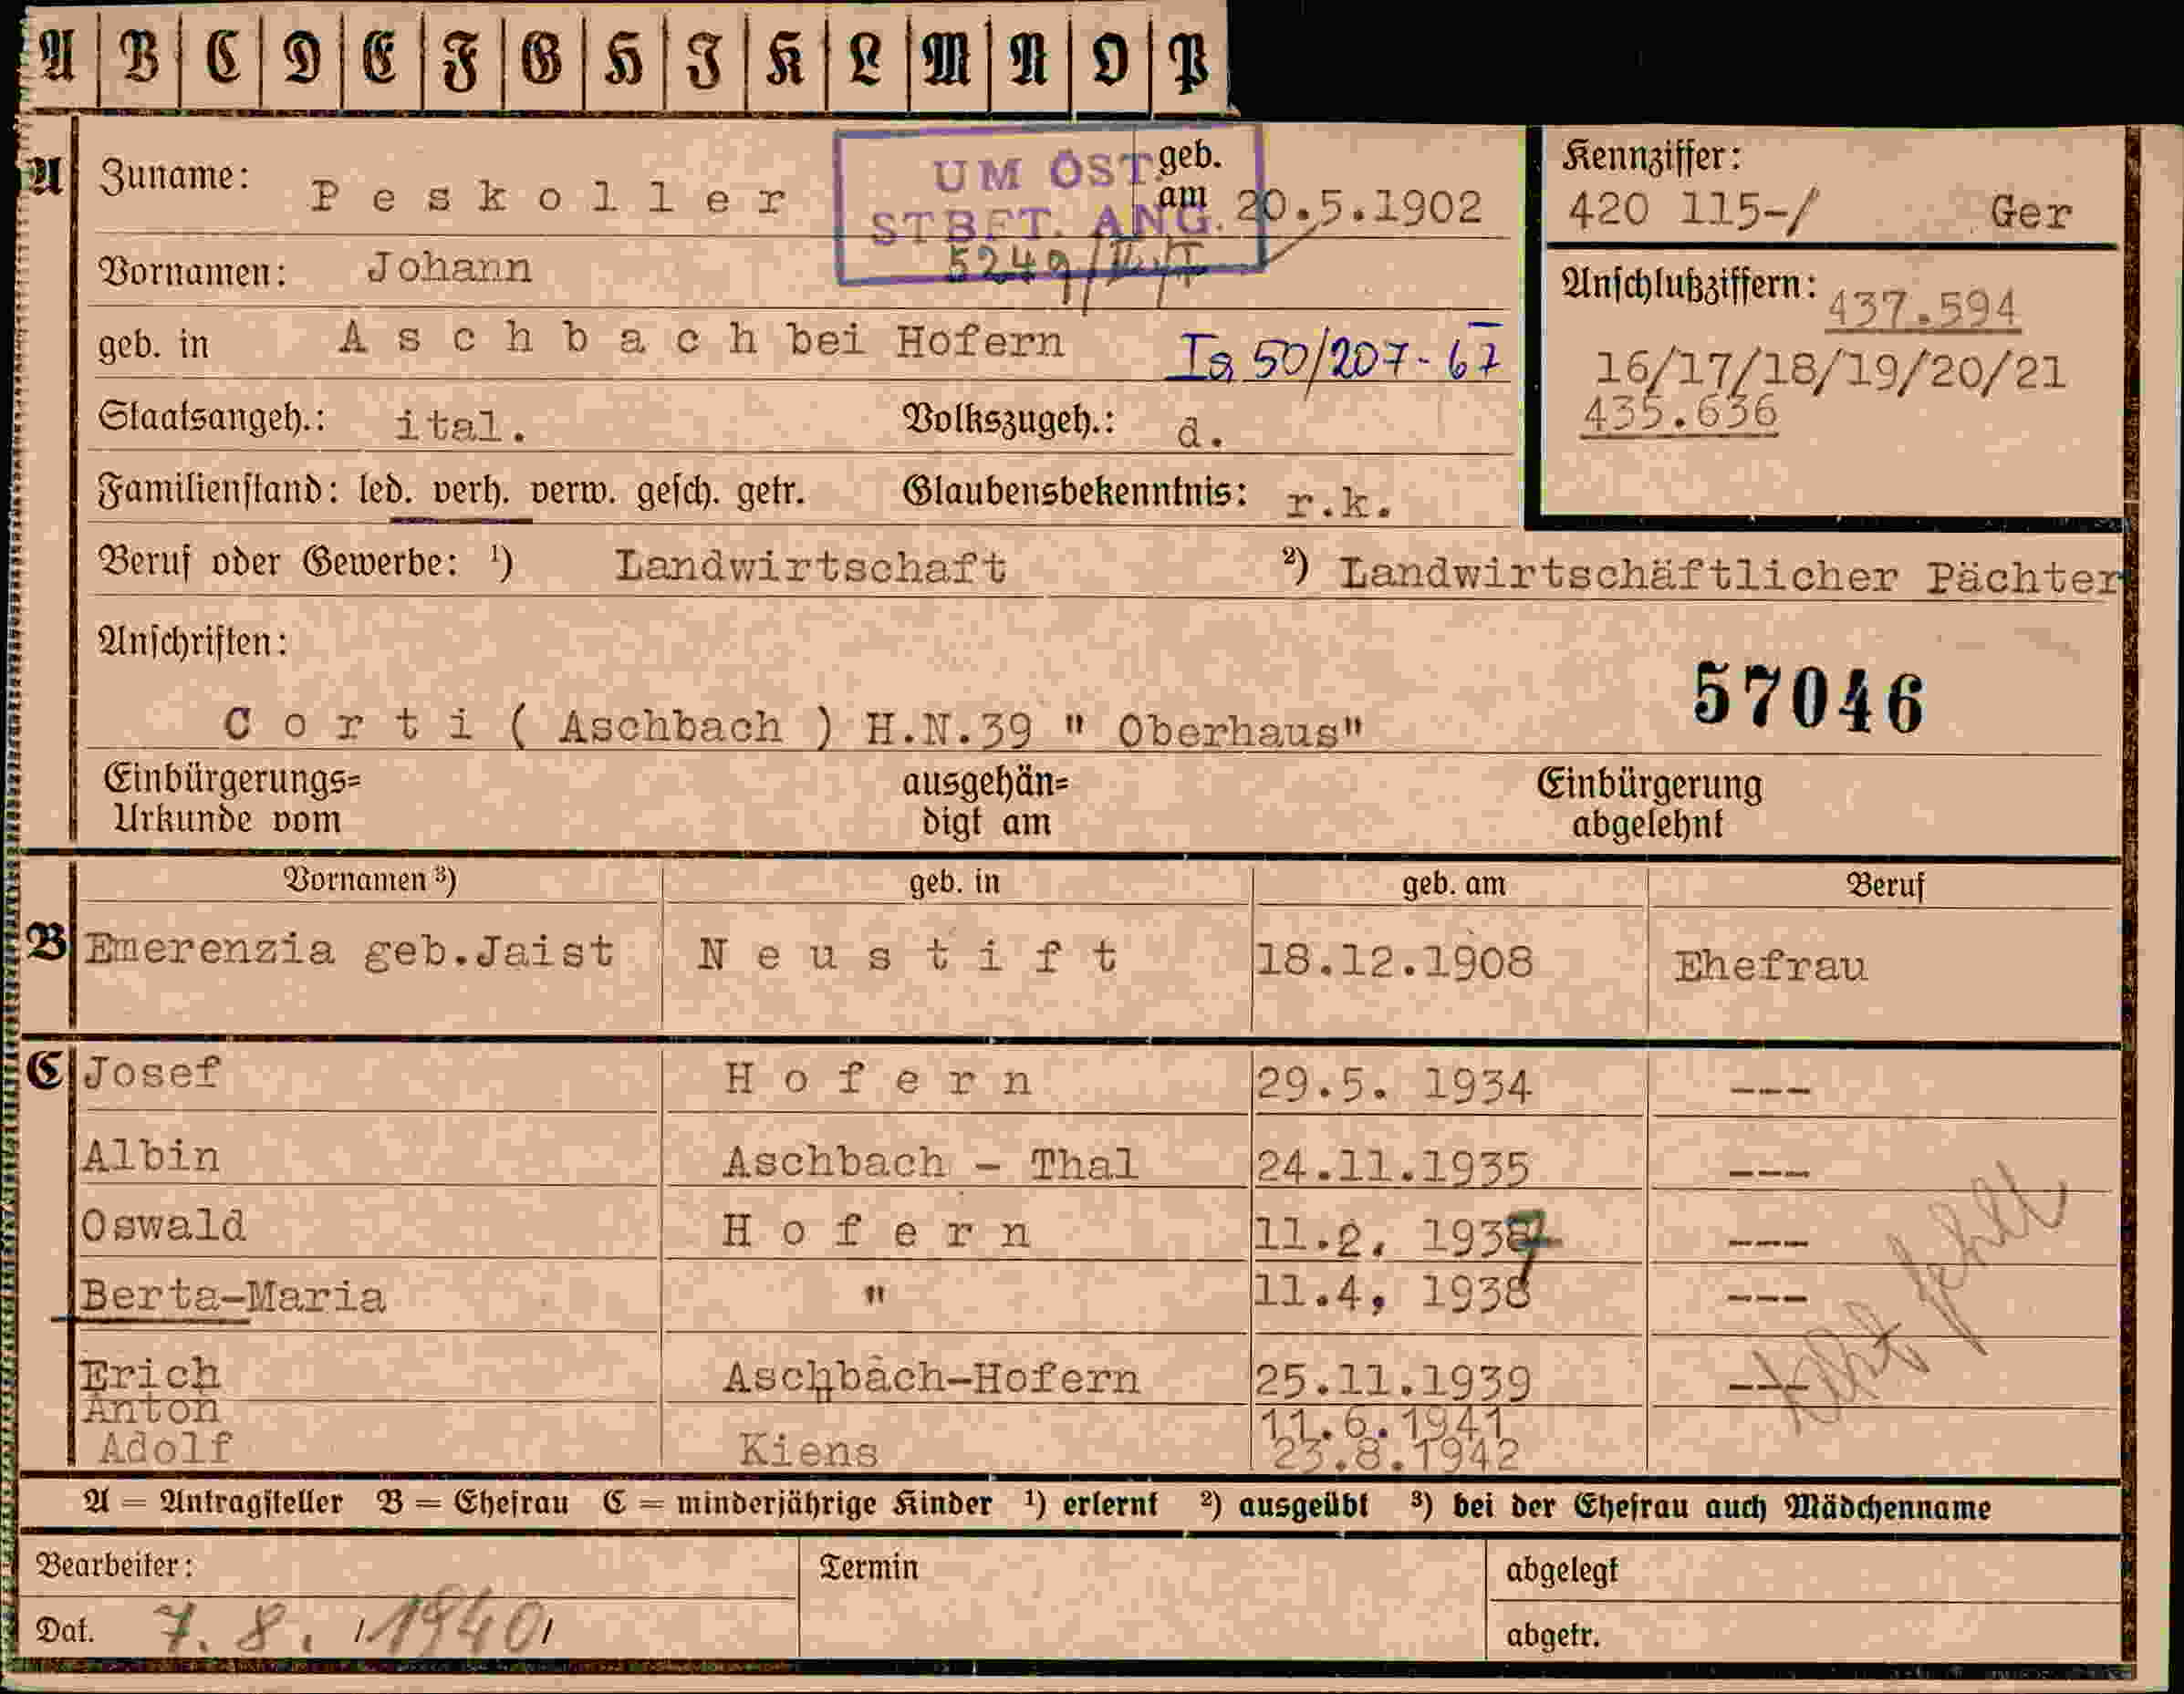 A B C D E F G H I K L M N O P
A Zuname: Peskoller geb. am 20.5.1902
UM ÖST.
STBFT. ANG.
Kennziffer:
420 115-/ Ger
Vornamen: Johann
Anschlußziffern: 437.594
16/17/18/19/20/21
435.636
geb. in Aschbach bei Hofern
50/207-67
Staatsangeh.: ital. Volkszugeh.: d.
Familienstand: led. verh. verw. gesch. getr. Glaubensbekenntnis: r.k.
Beruf oder Gewerbe: ¹) Landwirtschaft ²) Landwirtschäftlicher Pächter
Anschriften:
57046
Corti ( Aschbach ) H.N.39 " Oberhaus"
Einbürgerungs= Urkunde vom ausgehän= digt am Einbürgerung abgelehnt
Vornamen ³) geb. in geb. am Beruf
B Emerenzia geb.Jaist Neustift 18.12.1908 Ehefrau
C Josef Hofern 29.5. 1934 ---
Albin Aschbach - Thal 24.11.1935 ---
Oswald Hofern 11.2. 1937 ---
Berta-Maria " 11.4, 1938 ---
Erich Aschbach-Hofern 25.11.1939 ---
Anton 11.6.1941
Adolf Kiens 23.8.1942
A = Antragsteller B = Ehefrau C = minderjährige Kinder ¹) erlernt ²) ausgeübt ³) bei der Ehefrau auch Mädchenname
Bearbeiter: Termin abgelegt
Dat. 7. 8. 1940 abgetr.